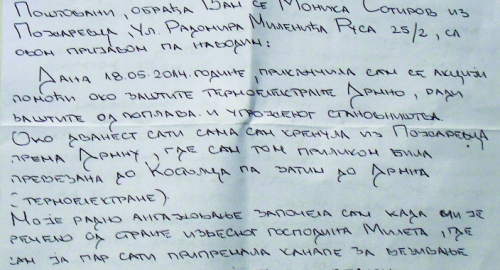 Поштовани, обраћа Вам се Моника Сотиров из
Пожаревца, ул. Радомира Миленића Руса 25/2, са
овом пријавом па наводим:
Дана 18.05.2014. године, прикључила сам се акцији
помоћи око заштите термоелектране Дрмно, ради
заштите од поплава и угроженог становништва.
Око дванест сати сама сам кренула из Пожаревца
према Дрмну, где сам том приликом била
превезана до Костолца па затим до Дрмна
(термоелектране).
Моје радно ангажовање започела сам када ми је
речено од стране извесног господина Милета, где
сам ја пар сати припремала канапе за везивање